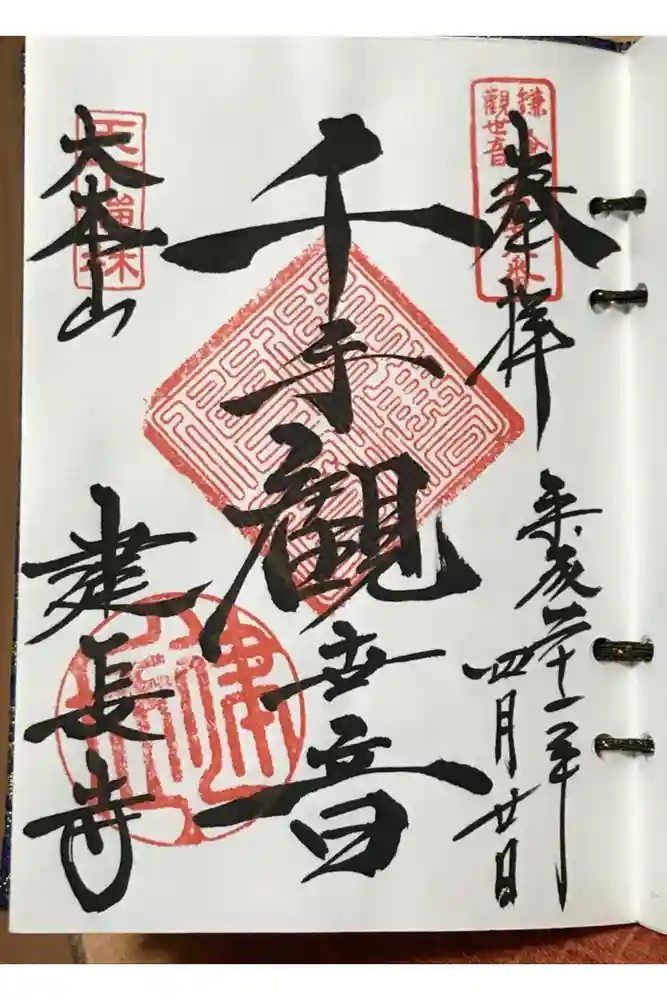 鎌倉
觀世音
奉拝
平成三十一年
四月廿日
千手観世音
大本山
建長寺